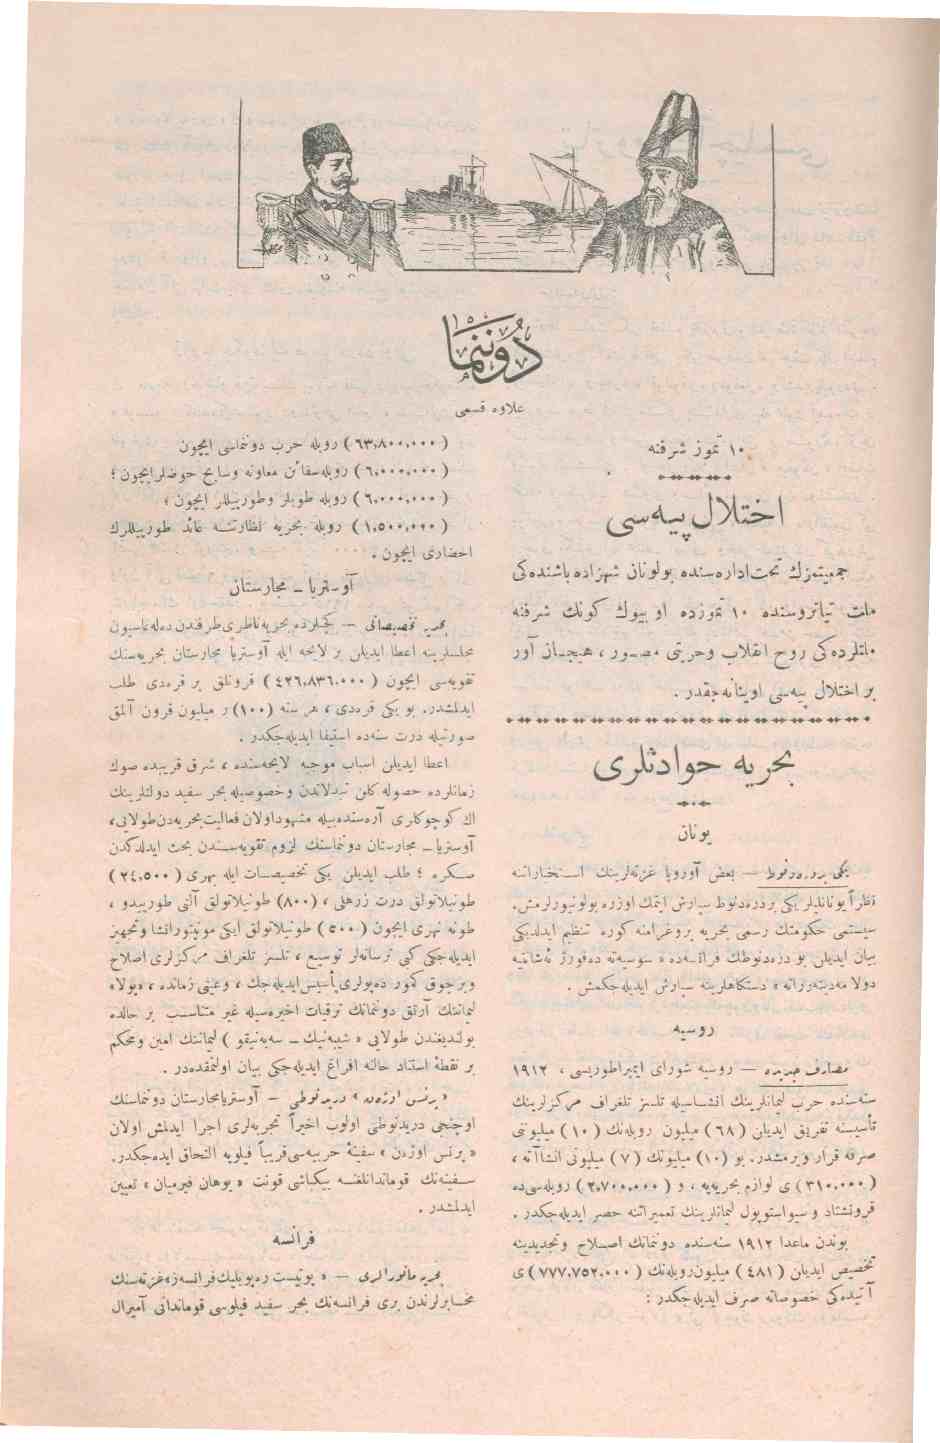 دوننما
علاوه قسمی
۱۰ تموز شرفنه
اختلال پیه‌سی
جمعیتمزك تحت اداره‌سنده بولونان شهزاده باشنده‌کی
ملت تیاتروسنده ۱۰ تموزده او بیوك کونك شرفنه
ملتلرده‌کی روح انقلاب وحریتی مصور ، هیجان آور
بر اختلال پیه‌سی اوینانه‌جقدر .
بحریه حوادثلری
یونان
یکی بر دره‌دنوط — بعض آوروپا غزته‌لرینك استخباراتنه
نظراً یونانلیلر یکی بر دره‌دنوط سپارش ایتمك اوزره بولونیورلرمش.
سیستمی حکومتك رسمی بحریه پروغرامنه کوره تنظیم ایدلدیکی
بیان ایدیلن بو دره‌دنوطك فرانسه‌ده « سوسیه‌ته ده‌فورژ نه‌شانتیه
دولا مه‌دیته‌رانه » دستکاهلرینه سپارش ایدیله‌جکمش .
روسیه
مصارف جدیده — روسیه شورای ایمپراطوریسی ، ۱۹۱۲
سنه‌سنده حرب لیمانلرینك انشاسیله تلسز تلغراف مرکزلرینك
تأسیسنه تفریق ایدیلن (۶۸) میلیون روبله‌نك (۱۰) میلیوننی
صرفه قرار ویرمشدر. بو (۱۰) میلیونك (۷) میلیونی انشاآته ،
(۳۱۰,۰۰۰) ی لوازم بحریه‌یه ، و (۲,۷۰۰,۰۰۰) روبله‌سی‌ده
قرونشتاد و سیواستوپول لیمانلرینك تعمیراتنه حصر ایدیله‌جکدر .
بوندن ماعدا ۱۹۱۲ سنه‌سنده دونمانك اصلاح وتجدیدینه
تخصیص ایدیلن (۴۸۱) میلیون روبله‌نك (۷۷۷,۷۵۲,۰۰۰) ی
آتیده‌کی خصوصاته صرف ایدیله‌جکدر :
(۶۳,۸۰۰,۰۰۰) روبله حرب دونماسی ایچون
(۶,۰۰۰,۰۰۰) روبله سفائن معاونه وسابح حوضلر ایچون ؛
(۶,۰۰۰,۰۰۰) روبله طوپلر وطورپیللر ایچون ؛
(۱,۵۰۰,۰۰۰) روبله بحریه نظارتنه عائد طورپیللرك
احضاری ایچون .
آوستریا — مجارستان
بحریه تخصیصاتی — کچنلرده بحریه ناظری طرفندن ده‌له‌غاسیون
مجلسلرینه اعطا ایدیلن بر لایحه ایله آوستریا مجارستان بحریه‌سنك
تقویه‌سی ایچون (۴۲۶,۸۳۶,۰۰۰) قرونلق بر قره‌دی طلب
ایدلمشدر. بو یکی قره‌دی ، هر سنه (۱۰۰) ر میلیون قرون آلمق
صورتیله درت سنه‌ده استیفا ایدیله‌جکدر .
اعطا ایدیلن اسباب موجبه لایحه‌سنده ، شرق قریبده صوك
زمانلرده حصوله کلن تبدلاتدن وخصوصیله بحر سفید دولتلرینك
اك کوچوکلری آره‌سنده‌بیله مشهود اولان فعالیت بحریه‌دن طولایی،
آوستریا — مجارستان دونماسنك لزوم تقویه‌سندن بحث ایدلدکدن
صکره ؛ طلب ایدیلن یکی تخصیصات ایله بهری (۲۴,۵۰۰)
طونیلاتولق درت زرهلی ، (۸۰۰) طونیلاتولق آلتی طورپیدو ،
طونه نهری ایچون (۵۰۰) طونیلاتولق ایکی مونیتور انشا وتجهیز
ایدیله‌جکی کبی ترسانه‌لر توسیع ، تلسز تلغراف مرکزلری اصلاح
وبر چوق کمور ده‌پولری تأسیس ایدیله‌جك ، وعینی زمانده ، «پولا»
لیماننك آرتق دونمانك ترقیات اخیره‌سیله غیر متناسب بر حالده
بولندیغندن طولایی « شیبه‌نیك — سه‌به‌نیقو » لیماننك امین ومحکم
بر نقطهٔ استناد حالنه افراغ ایدیله‌جکی بیان اولنمقده‌در .
« پرنس اوژه‌ن » دریدنوطی — آوستریا مجارستان دونماسنك
اوچنجی دریدنوطی اولوب اخیراً تجربه‌لری اجرا ایدلمش اولان
« پرنس اوژن » سفینهٔ حربیه‌سی قریباً فیلویه التحاق ایده‌جکدر.
سفینه‌نك قوماندانلغنه بیکباشی قونت « یوهان فیرمیان » تعیین
ایدلمشدر .
فرانسه
بحریه مانوره‌لری — « یونیست ره‌پوبلیك فرانسه‌ز » غزته‌سنك
مخابرلرندن بری فرانسه‌نك بحر سفید فیلوسی قوماندانی آمیرال